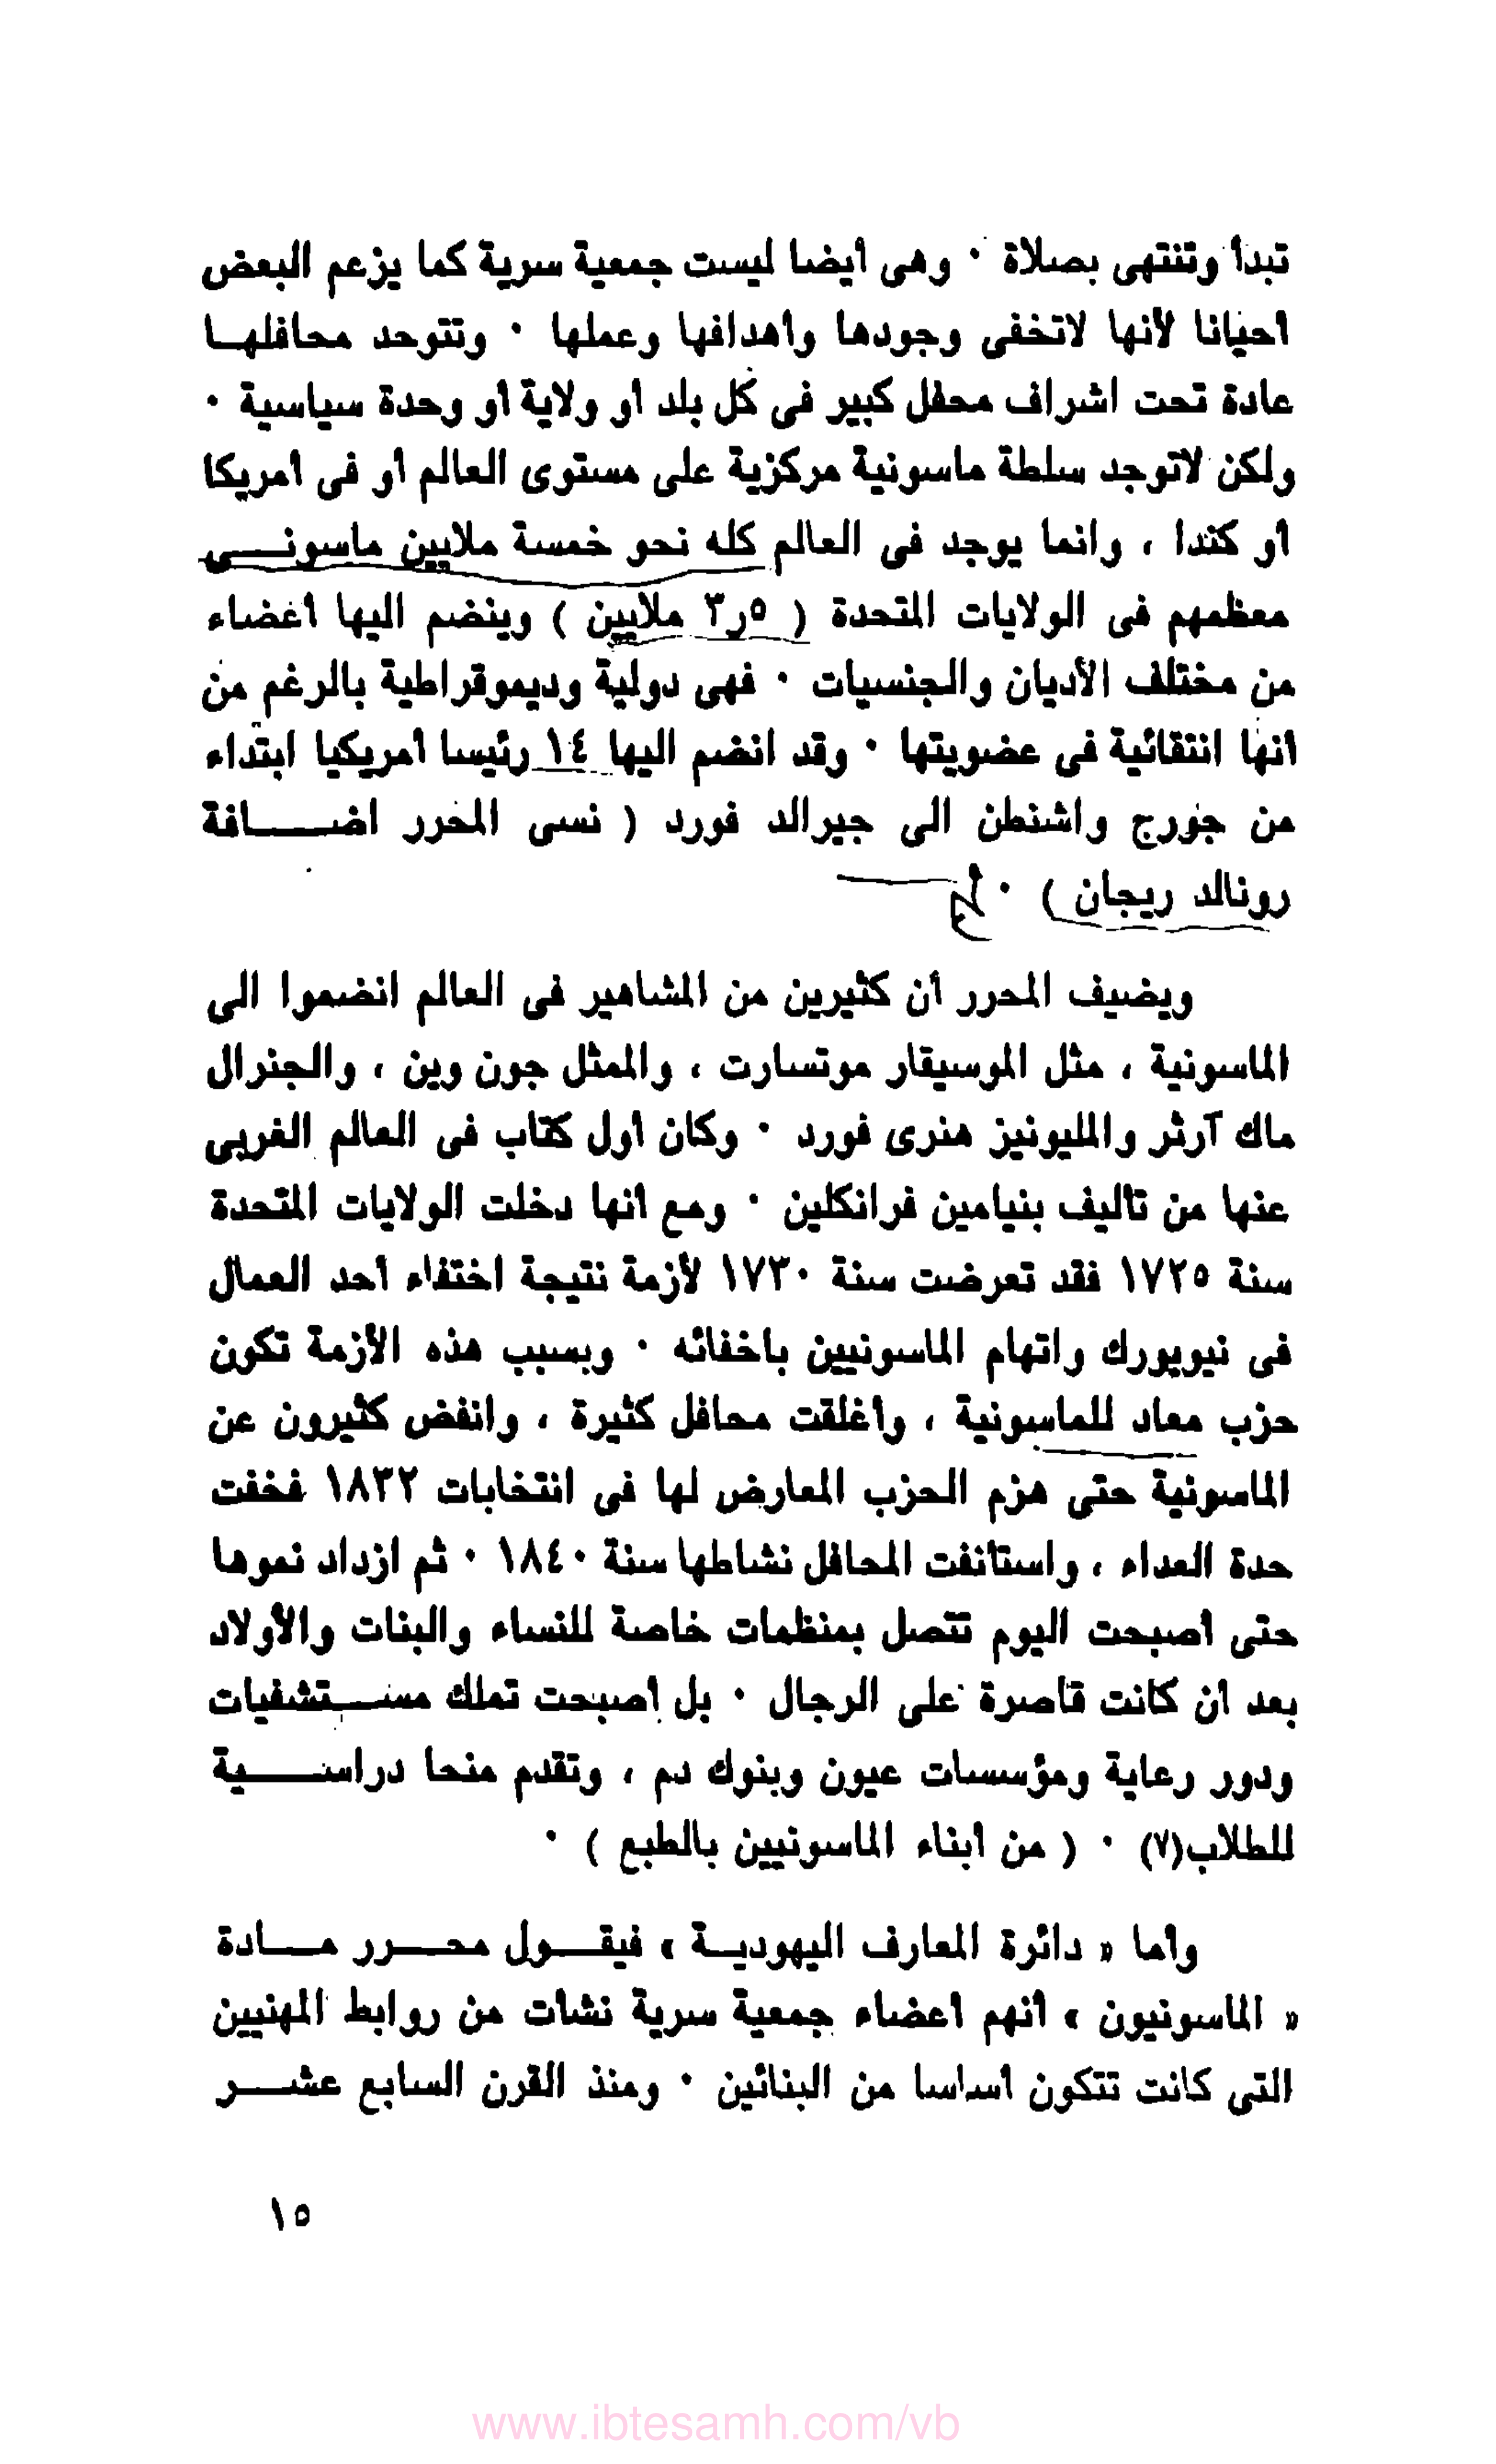 تبدأ وتنتهى بصلاة ٠ وهى أيضا ليست جمعية سرية كما يزعم البعض
أحيانا لأنها لاتخفى وجودها وأهدافها وعملها ٠ وتتوحد محافلهـا
عادة تحت اشراف محفل كبير فى كل بلد أو ولاية أو وحدة سياسية ٠
ولكن لاتوجد سلطة ماسونية مركزية على مستوى العالم أو فى أمريكا
أو كندا ، وانما يوجد فى العالم كله نحو خمسة ملايين ماسونـــى
معظمهم فى الولايات المتحدة ( ٣٫٥ ملايين ) وينضم اليها أعضاء
من مختلف الأديان والجنسيات ٠ فهى دولية وديموقراطية بالرغم من
أنها انتقائية فى عضويتها ٠ وقد انضم اليها ١٤ رئيسا أمريكيا ابتداء
من جورج واشنطن الى جيرالد فورد ( نسى المحرر اضـــــافة
رونالد ريجان ) ٠
ويضيف المحرر أن كثيرين من المشاهير فى العالم انضموا الى
الماسونية ، مثل الموسيقار موتسارت ، والممثل جون وين ، والجنرال
ماك آرثر والمليونيز هنرى فورد ٠ وكان أول كتاب فى العالم الغربى
عنها من تأليف بنيامين فرانكلين ٠ ومع أنها دخلت الولايات المتحدة
سنة ١٧٢٥ فقد تعرضت سنة ١٧٣٠ لأزمة نتيجة اختفاء أحد العمال
فى نيويورك واتهام الماسونيين باخفائه ٠ وبسبب هذه الأزمة تكون
حزب معاد للماسونية ، وأغلقت محافل كثيرة ، وانفض كثيرون عن
الماسونية حتى هزم الحزب المعارض لها فى انتخابات ١٨٣٢ فخفت
حدة العداء ، واستأنفت المحافل نشاطها سنة ١٨٤٠ ٠ ثم ازداد نموها
حتى أصبحت اليوم تتصل بمنظمات خاصة للنساء والبنات والأولاد
بعد أن كانت قاصرة على الرجال ٠ بل أصبحت تملك مســتشفيات
ودور رعاية ومؤسسات عيون وبنوك دم ، وتقدم منحا دراســـــية
للطلاب(٧) ٠ ( من أبناء الماسونيين بالطبع ) ٠
وأما « دائرة المعارف اليهوديــة » فيقـــول محـــرر مـــادة
« الماسونيون » أنهم أعضاء جمعية سرية نشأت من روابط المهنيين
التى كانت تتكون أساسا من البنائين ٠ ومنذ القرن السابع عشـــر
١٥
www.ibtesamh.com/vb